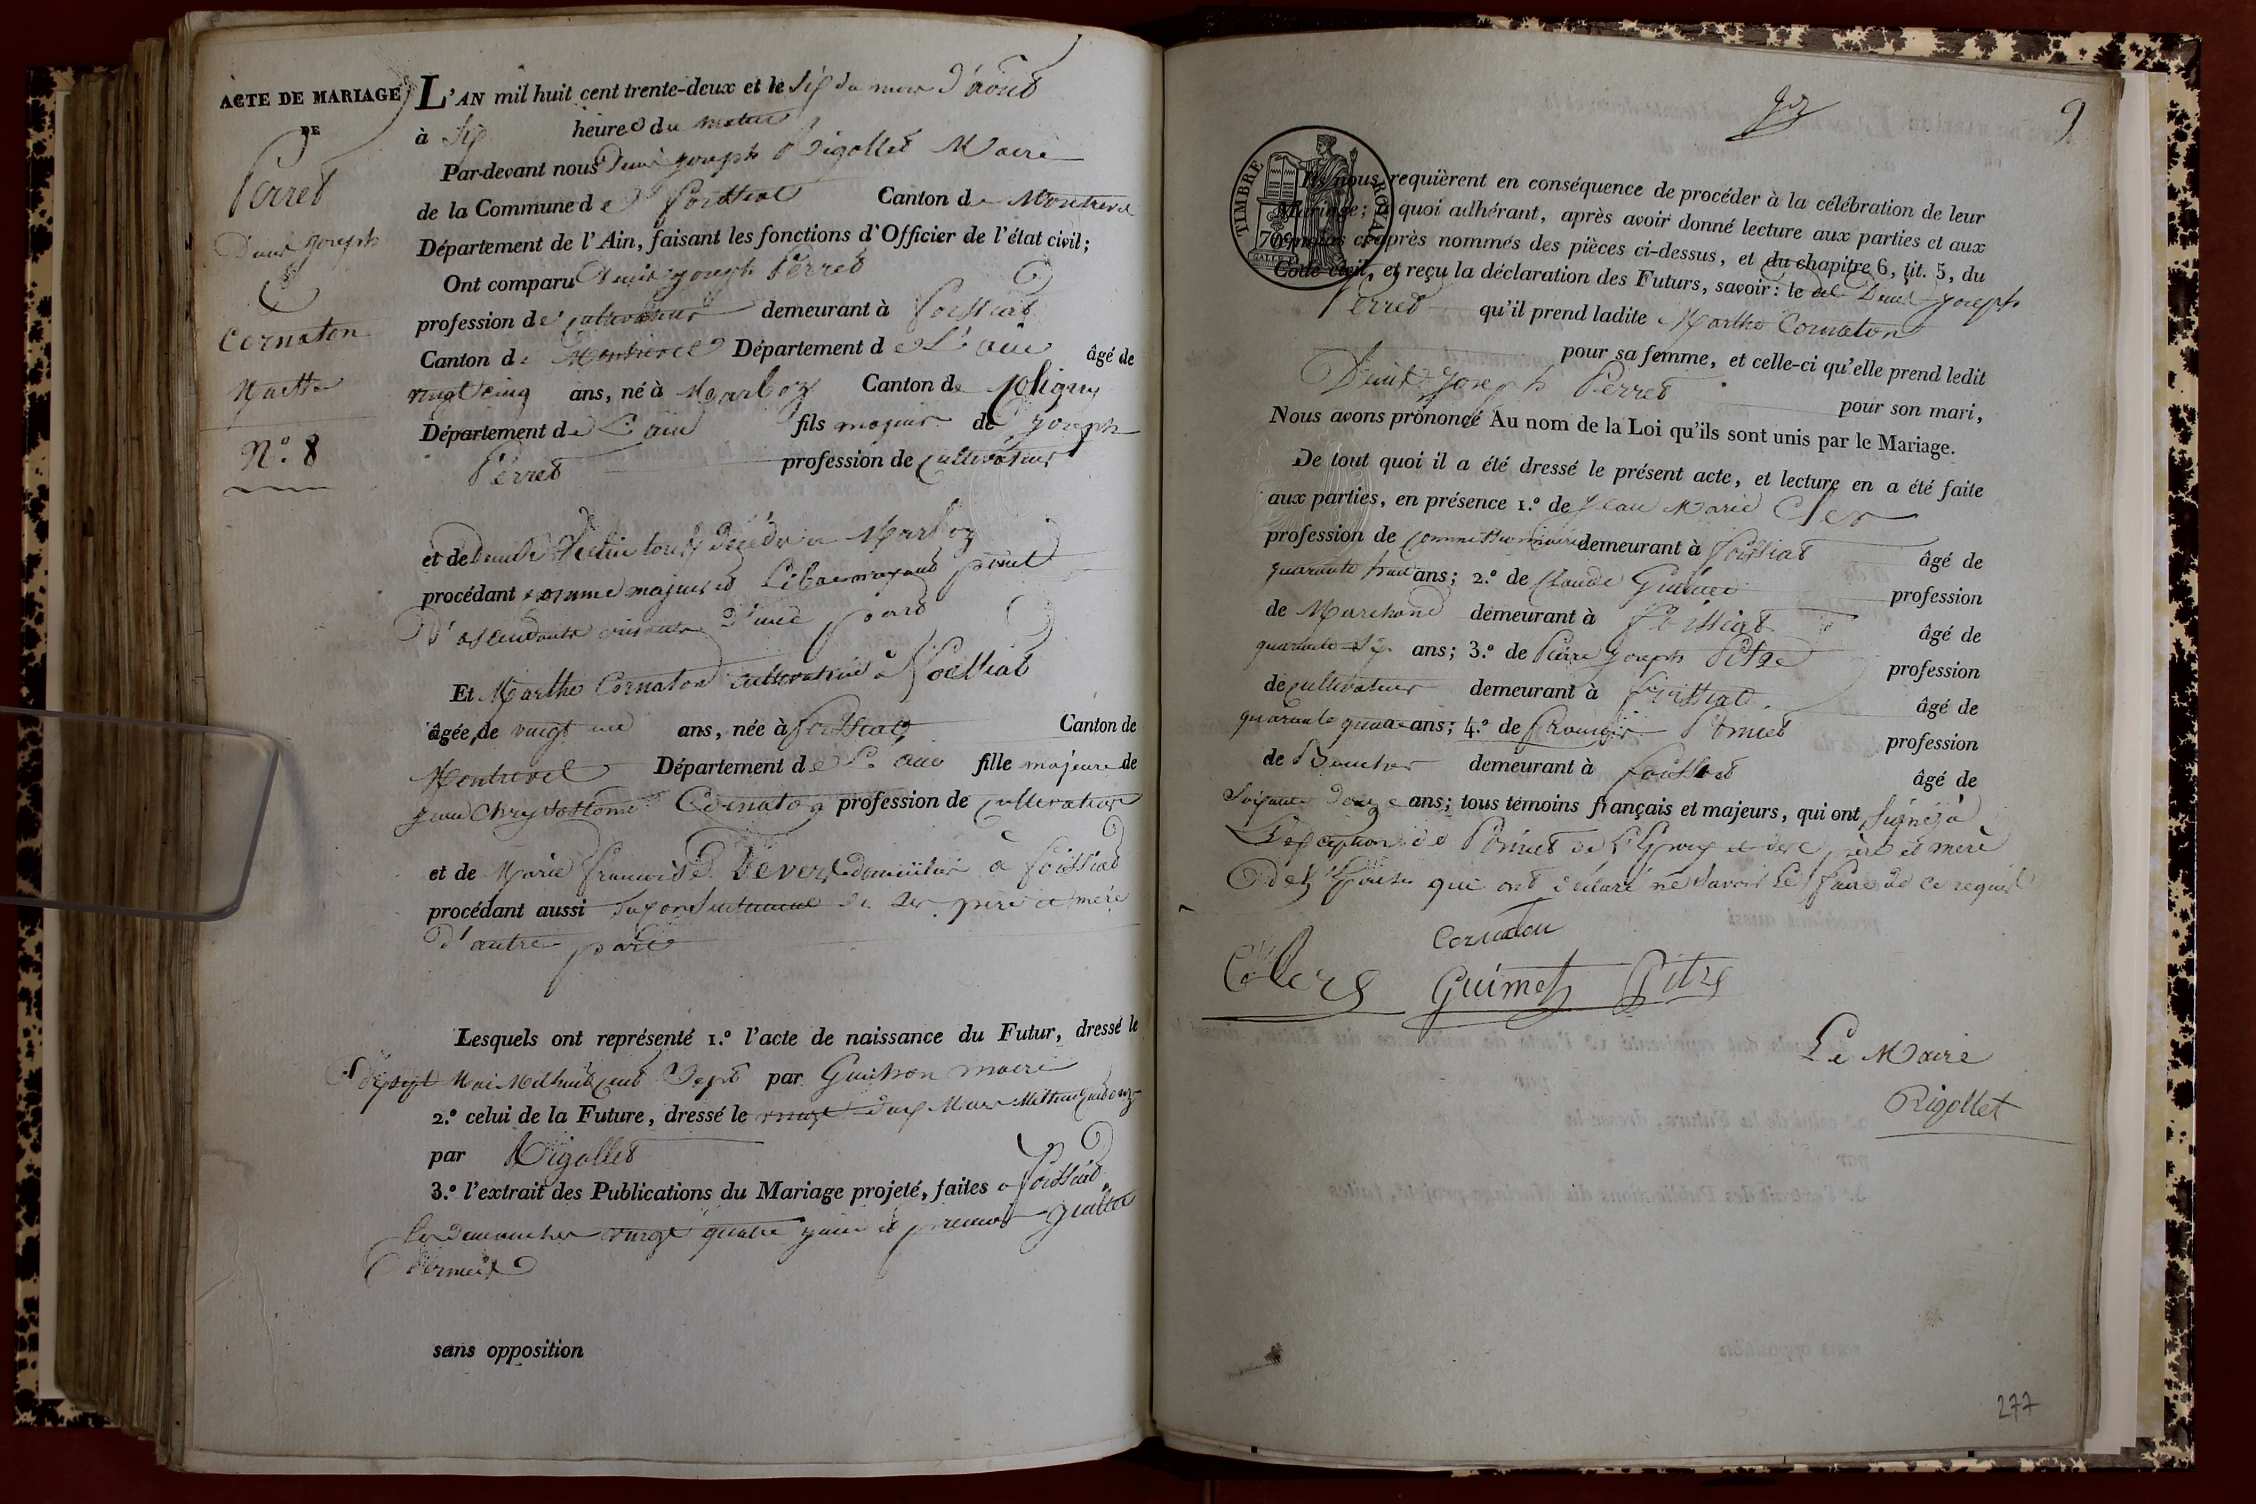 ACTE DE MARIAGE
DE
Perret
Denis Joseph
&
Cornaton
Marthe
N.º 8
L'AN mil huit cent trente-deux et le six du mois d'août
à six heures du matin
Par-devant nous Denis Joseph Rigollet Maire
de la Commune de Foissiat Canton de Montrevel
Département de l'Ain, faisant les fonctions d'Officier de l'état civil;
Ont comparu Denis Joseph Perret
profession de cultivateur demeurant à Foissiat
Canton de Montrevel Département de L'ain âgé de
vingt cinq ans, né à Marboz Canton de Coligny
Département de L'ain fils majeur de Joseph
Perret profession de cultivateur
et de Denise décédée à Marboz
procédant comme majeur et
d'ascendants d'une part
Et Marthe Cornaton cultivatrice à Foissiat
âgée de vingt un ans, née à Foissiat Canton de
Montrevel Département de L'ain fille majeure de
Jean Chrysostome Cornaton profession de cultivateur
et de Marie Françoise Devers domiciliés à Foissiat
procédant aussi du consentement de ses père et mère
d'autre part
Lesquels ont représenté 1.º l'acte de naissance du Futur, dressé le
dix sept Mai Mil huit cent sept par Guichon maire
2.º celui de la Future, dressé le vingt deux Mars Mil huit cent onze
par Rigollet
3.º l'extrait des Publications du Mariage projeté, faites à Foissiat
les dimanches vingt quatre juin et premier juillet
derniers
sans opposition
9
TIMBRE ROYAL
70
Ils nous requièrent en conséquence de procéder à la célébration de leur
Mariage; à quoi adhérant, après avoir donné lecture aux parties et aux
témoins ci-après nommés des pièces ci-dessus, et du chapitre 6, tit. 5, du
Code civil, et reçu la déclaration des Futurs, savoir: le dit Denis Joseph
Perret qu'il prend ladite Marthe Cornaton
pour sa femme, et celle-ci qu'elle prend ledit
Denis Joseph Perret pour son mari,
Nous avons prononcé Au nom de la Loi qu'ils sont unis par le Mariage.
De tout quoi il a été dressé le présent acte, et lecture en a été faite
aux parties, en présence 1.º de Jean Marie Cler
profession de commissionnaire demeurant à Foissiat âgé de
quarante huit ans; 2.º de Claude Guimet profession
de Marchand demeurant à Foissiat âgé de
quarante six ans; 3.º de Pierre Joseph Pitre profession
de cultivateur demeurant à Foissiat âgé de
quarante quatre ans; 4.º de François Pomiet profession
de Boucher demeurant à Foissiat âgé de
soixante douze ans; tous témoins français et majeurs, qui ont signé à
L'exception de Pomiet de L'Epoux et des père et mère
des Epoux qui ont déclaré ne savoir le faire de ce requis
Cornaton
Clerg Guimet Pitre
Le Maire
Rigollet
277